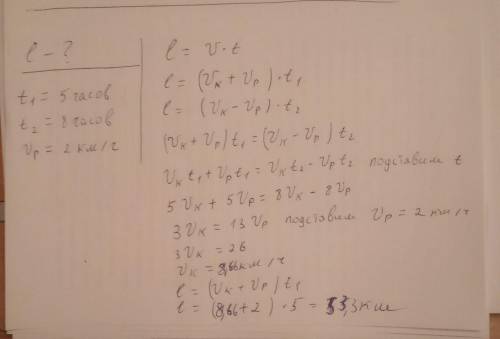 l - ?
t₁ = 5 часов
t₂ = 8 часов
Vр = 2 км/ч
l = V · t
l = (Vк + Vр) · t₁
l = (Vк - Vр) · t₂
(Vк + Vр) t₁ = (Vк - Vр) t₂
Vк t₁ + Vр t₁ = Vк t₂ - Vр t₂ подставим t
5 Vк + 5 Vр = 8 Vк - 8 Vр
3 Vк = 13 Vр подставим Vр = 2 км/ч
3 Vк = 26
Vк = 8,66 км/ч
l = (Vк + Vр) t₁
l = (8,66 + 2) · 5 = 53,3 км